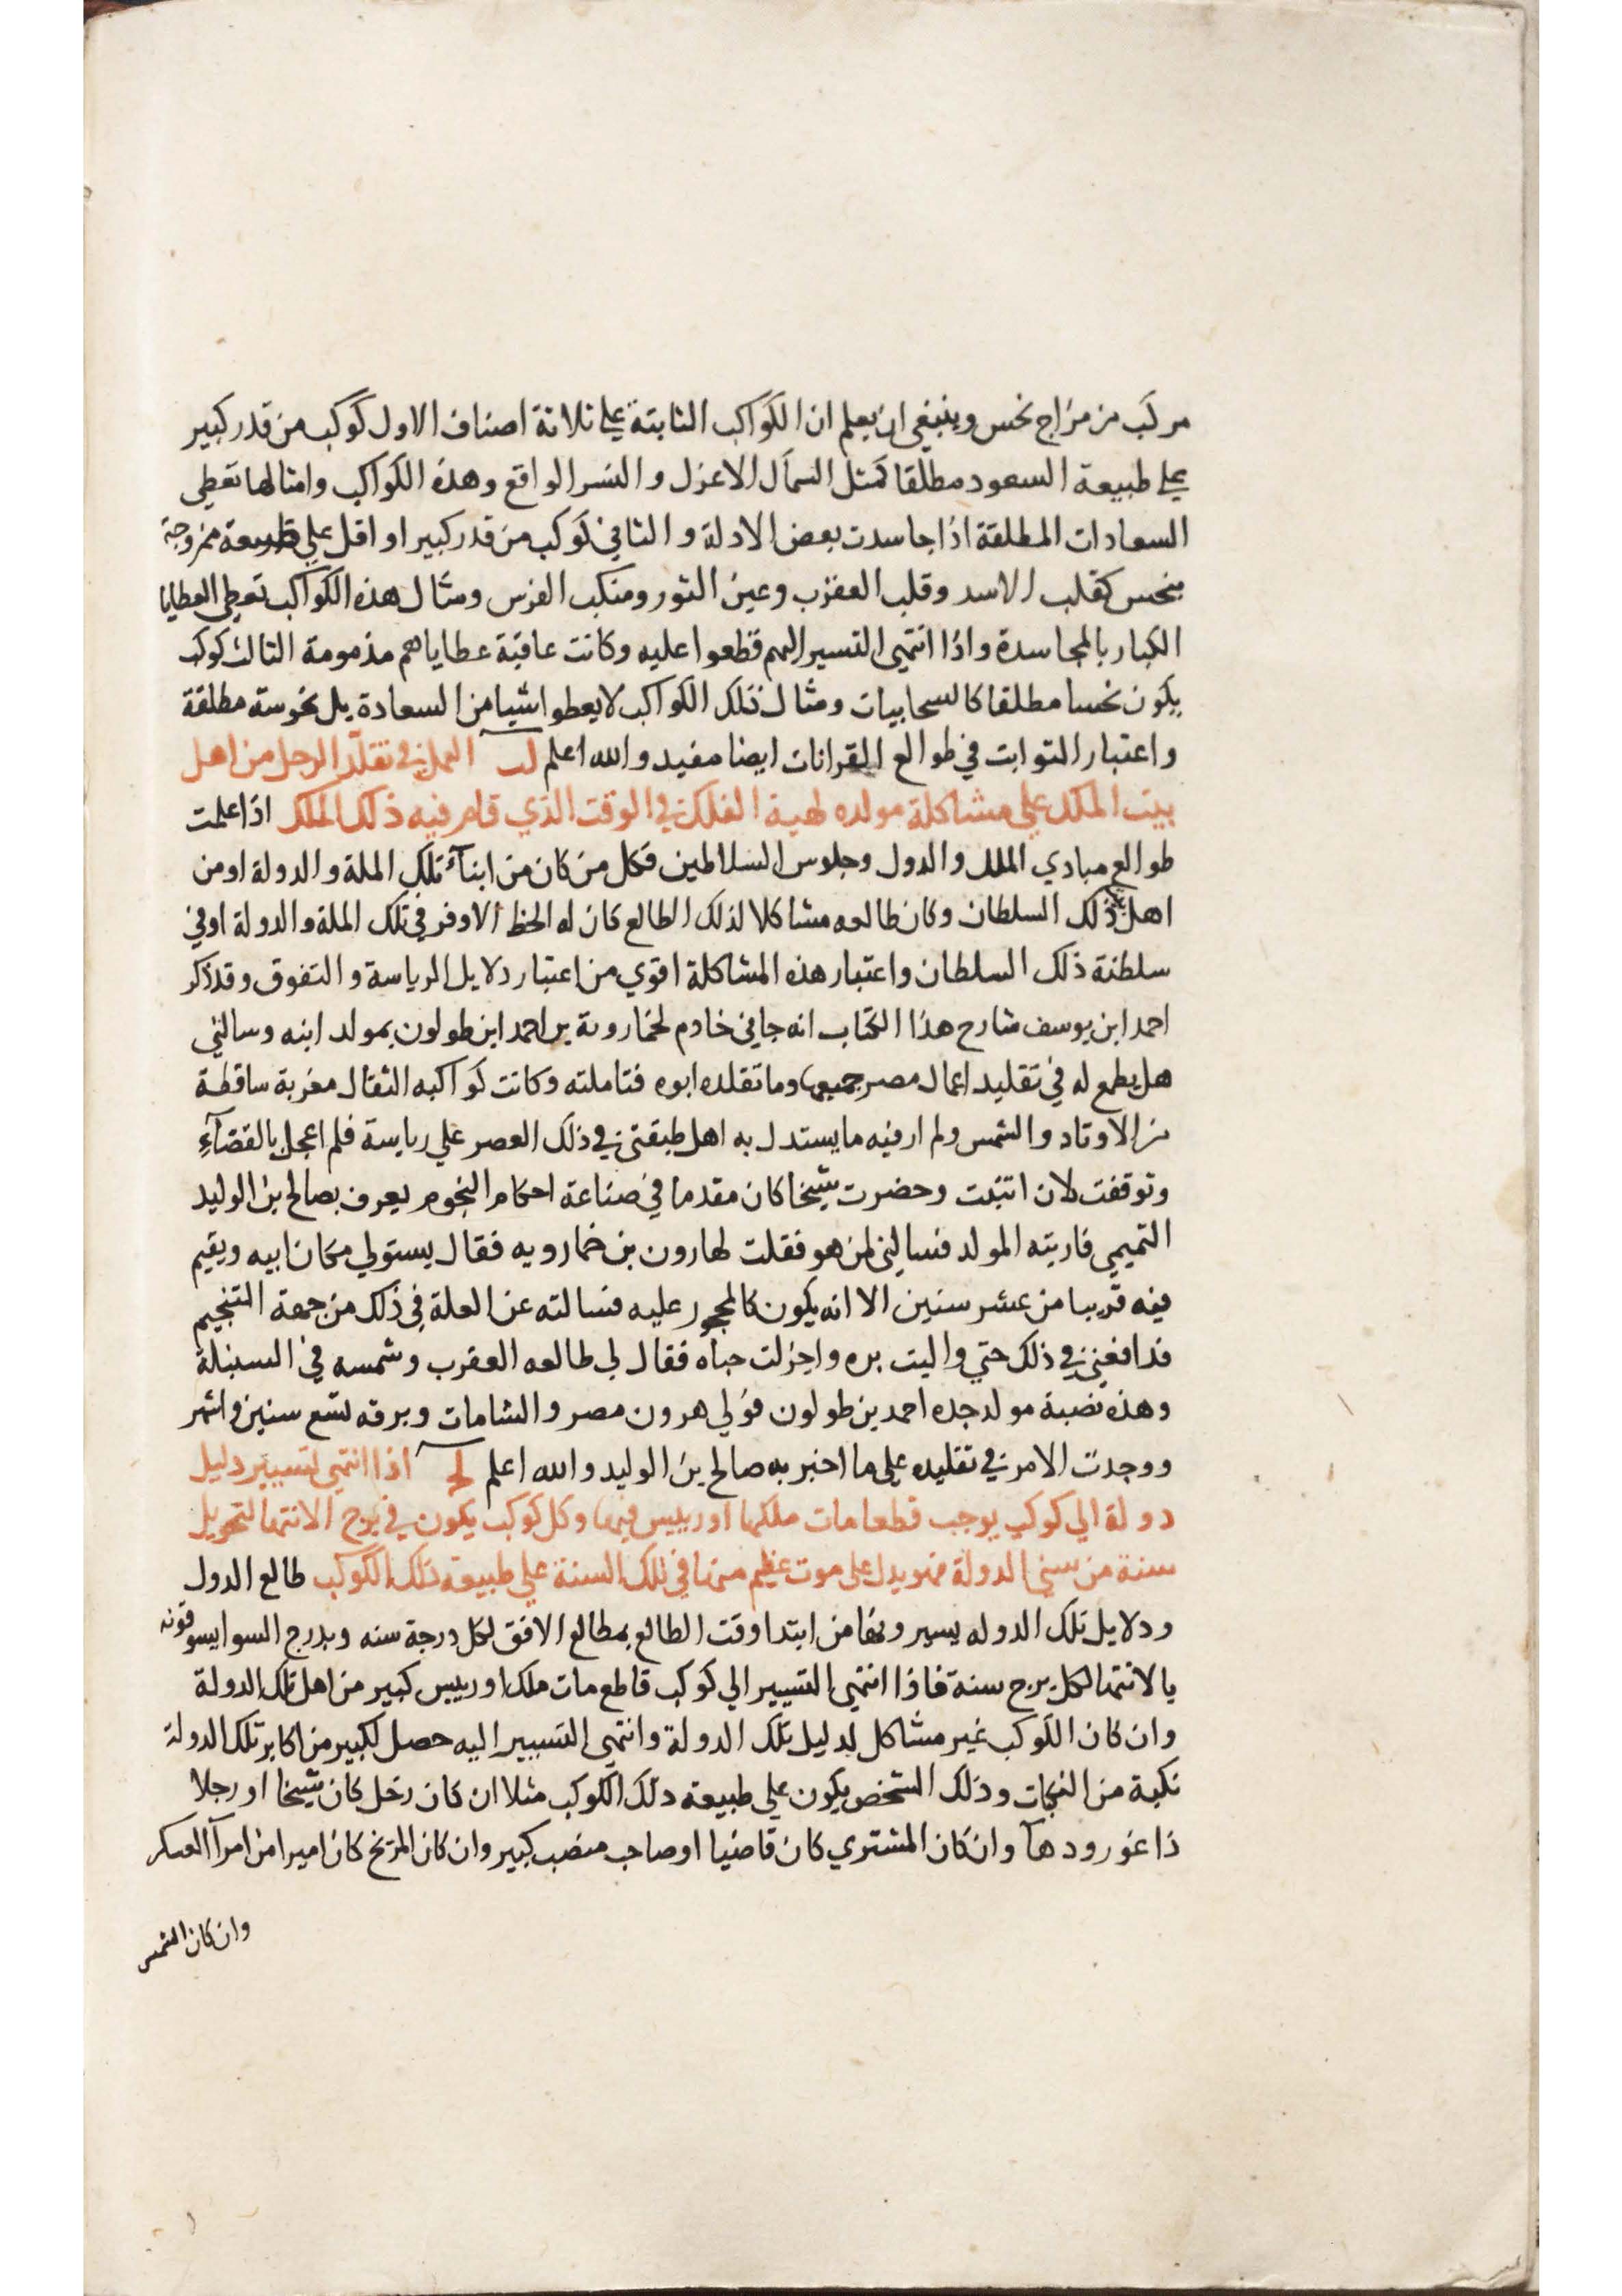 مركب من مزاج نحس وينبغي ان يعلم ان الكواكب الثابتة علي ثلاثة اصناف الاول كوكب من قدر كبير
علي طبيعة السعود مطلقا كمثل السماك الاعزل والنسر الواقع وهذه الكواكب وامثالها تعطي
السعادات المطلقة اذا جاسدت بعض الادلة والثاني كوكب من قدر كبير او اقل علي طبيعة ممزوجة
بنحس كقلب الاسد وقلب العقرب وعين الثور ومنكب الفرس ومثال هذه الكواكب تعطي العطايا
الكبار بالمجاسدة واذا انتهي التسيير اليهم قطعوا عليه وكانت عاقبة عطاياهم مذمومة الثالث كوكب
يكون نحسا مطلقا كالسحابيات ومثال تلك الكواكب لا يعطوا شيا من السعادة بل نحوسة مطلقة
واعتبار الثوابت في طوالع القرانات ايضا مفيد والله اعلم لب العمل في تقلد الرجل من اهل
بيت الملك علي مشاكلة مولده لهية الفلك في الوقت الذي قام فيه ذلك الملك اذا علمت
طوالع مبادي الملل والدول وجلوس السلاطين فكل من كان من ابناء تلك الملة والدولة او من
اهل ذلك السلطان وكان طالعه مشاكلا لذلك الطالع كان له الحظ الاوفر في تلك الملة والدولة او في
سلطنة ذلك السلطان واعتبار هذه المشاكلة اقوي من اعتبار دلايل الرياسة والتفوق وقد ذكر
احمد ابن يوسف شارح هذا الكتاب انه جاني خادم لخماروية بن احمد ابن طولون بمولد ابنه وسالني
هل يطمع له في تقليد اعمال مصر جميعها وما تقلده ابوه فتاملته وكانت كواكبه الثقال مغربة ساقطة
من الاوتاد والشمس ولم ار فيه ما يستدل به اهل طبقتي في ذلك العصر علي رياسة فلم اعجل بالقضآءِ
وتوقفت لان اتثبت وحضرت شيخا كان مقدما في صناعة احكام النجوم يعرف بصالح بن الوليد
التميمي فاريته المولد فسالني لمن هو فقلت لهارون بن خمارويه فقال يستولي مكان ابيه ويقيم
فيه قريبا من عشر سنين الا انه يكون كالمحجور عليه فسالته عن العلة في ذلك من جهة التنجيم
فدافعني في ذلك حتي واليت بره واجزلت حباه فقال لي طالعه العقرب وشمسه في السنبلة
وهذه نصبة مولد جده احمد بن طولون فولي هرون مصر والشامات وبرقه تسع سنين واشهر
ووجدت الامر في تقليده علي ما اخبر به صالح بن الوليد والله اعلم لج اذا انتهي تسيير دليل
دولة الي كوكب يوجب قطعا مات ملكها او رييس فيها وكل كوكب يكون في برج الانتها لتحويل
سنة من سني الدولة فهو يدل علي موت عظيم منها في تلك السنة علي طبيعة ذلك الكوكب طالع الدول
ودلايل تلك الدوله يسيرونها من ابتدا وقت الطالع بمطالع الافق لكل درجة سنه وبدرج السوا يسوقونه
بالانتها لكل برج سنة فاذا انتهي التسيير الي كوكب قاطع مات ملك او رييس كبير من اهل تلك الدولة
وان كان الكوكب غير مشاكل لدليل تلك الدولة وانتهي التسيير اليه حصل لكبير من اكابر تلك الدولة
نكبة من النكبات وذلك الشخص يكون علي طبيعة ذلك الكوكب مثلا ان كان زحل كان شيخا او رجلا
ذا غور ودهآ وان كان المشتري كان قاضيا او صاحب منصب كبير وان كان المريخ كان اميرا من امرآ العسكر
وان كان الشمس